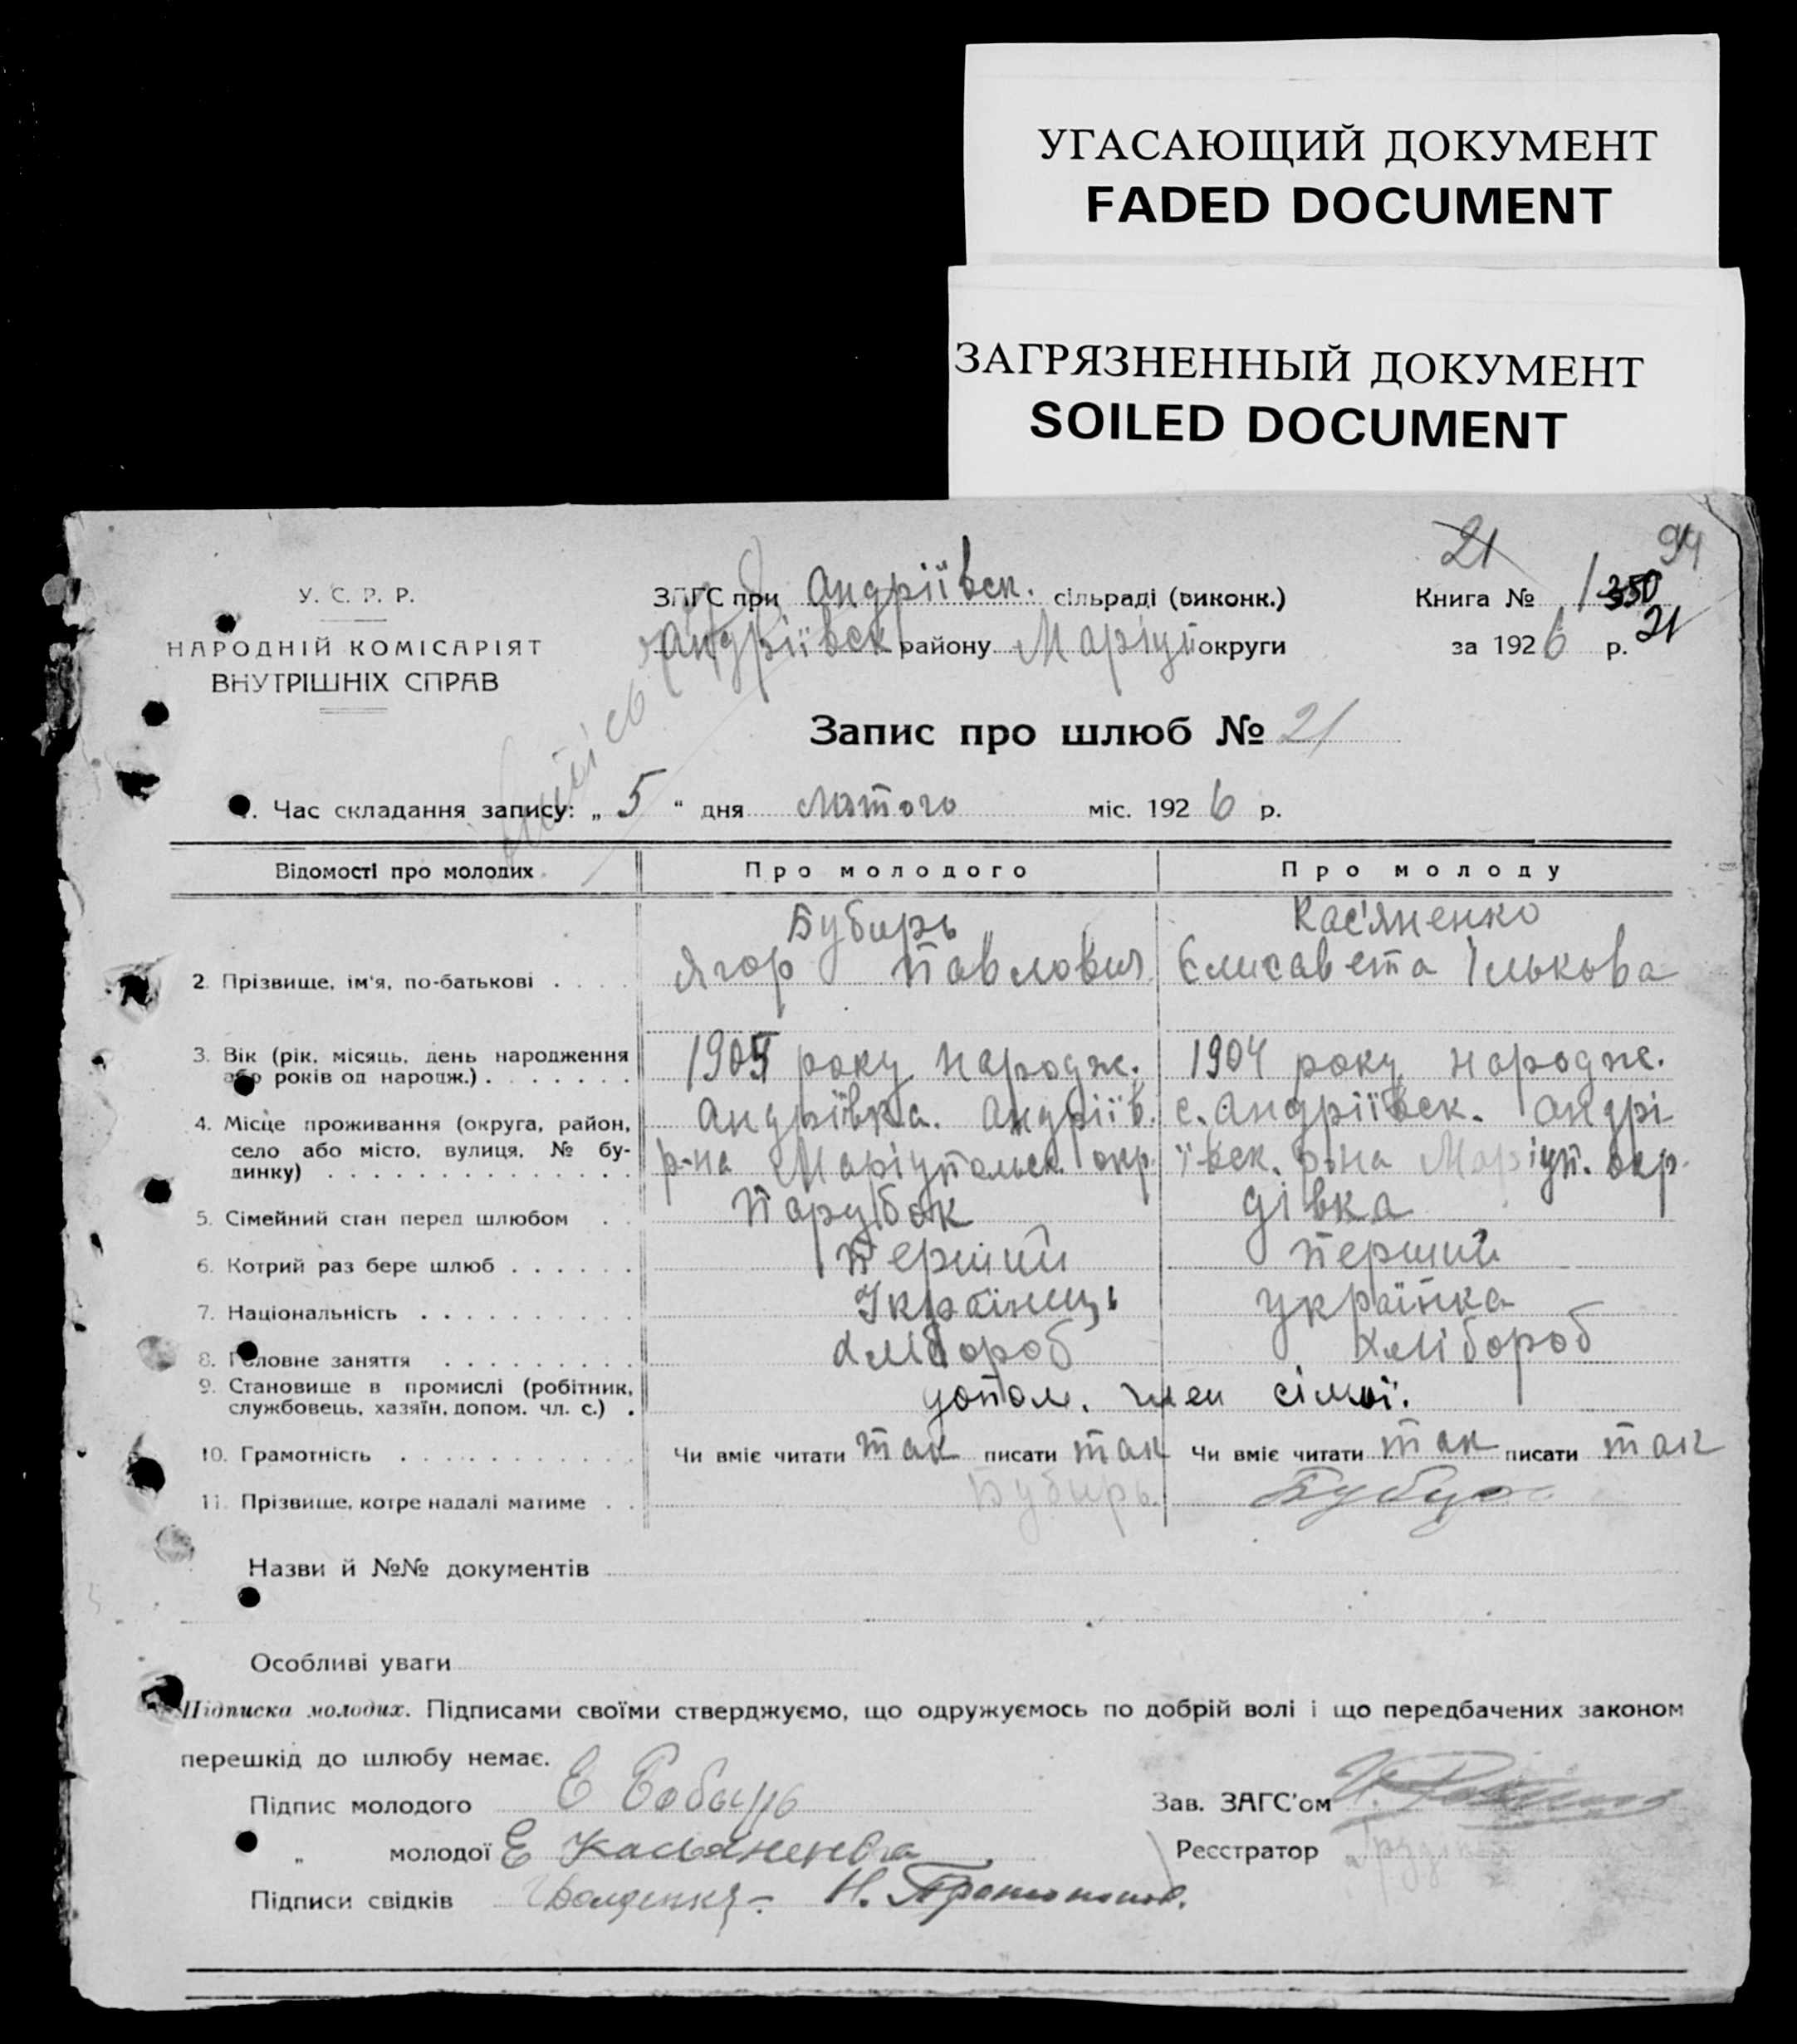 УГАСАЮЩИЙ ДОКУМЕНТ
FADED DOCUMENT
ЗАГРЯЗНЕННЫЙ ДОКУМЕНТ
SOILED DOCUMENT
21
94
У. С. Р. Р.
НАРОДНІЙ КОМІСАРІЯТ
ВНУТРІШНІХ СПРАВ
ЗАГС при Андріївск. сільраді (виконк.)
Андріївск району Маріуп округи
Книга № 1 350
за 1926 р. 21
Запис про шлюб № 21
1. Час складання запису: „ 5 “ дня лютого міс. 1926 р.
Відомості про молодих
Про молодого
Про молоду
2. Прізвище, ім'я, по-батькові . . . .
Бубирь
Ягор Павлович
Кас'яненко
Єлисавета Ількова
3. Вік (рік, місяць, день народження
або років од народж.) . . . . . . .
1905 року народж.
1904 року народж.
4. Місце проживання (округа, район,
село або місто, вулиця, № бу-
динку) . . . . . . . . . . . . . .
Андріївка. Андріїв.
р-на Маріупольск. окр.
с. Андріївск. Андрі
ївск. р-на Маріуп. окр.
5. Сімейний стан перед шлюбом . .
парубок
дівка
6. Котрий раз бере шлюб . . . . . .
перший
перший
7. Національність . . . . . . . . . .
Українець
українка
8. Головне заняття . . . . . . . . .
хлібороб
хлібороб
9. Становище в промислі (робітник,
службовець, хазяїн, допом. чл. с.) .
допом. член сімьї.
10. Грамотність . . . . . . . . . . . .
Чи вміє читати так писати так
Чи вміє читати так писати так
11. Прізвище, котре надалі матиме . .
Бубырь.
Назви й №№ документів
Особливі уваги
Підписка молодих. Підписами своїми стверджуємо, що одружуємось по добрій волі і що передбачених законом
перешкід до шлюбу немає.
Підпис молодого Е Бобырь
Зав. ЗАГС'ом
„ молодої Е Касьяненкова
Реєстратор
Підписи свідків Н.